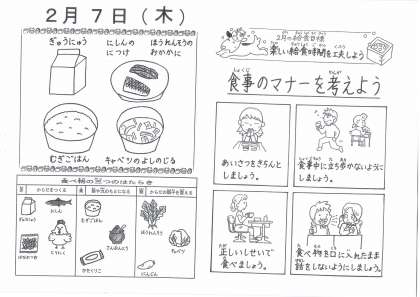 2月7日(木)
ぎゅうにゅう
にしんの
につけ
ほうれんそうの
おかかに
むぎごはん
キャベツのよしのじる
食べ物の三つのはたらき
からだをつくる
からだの調子を整える
ぎゅうにゅう
にしん
とりにく
むぎごはん
さんおんとう
かたくりこ
ほうれんそう
にんじん
キャベツ
2月の給食目標
楽しい給食の時間を工夫しよう
食事のマナーを考えよう
あいさつをきちんと
しましょう。
食事中に立ち歩かないように
しましょう。
正しいしせいで
食べましょう。
食べ物を口に入れたまま
話をしないようにしましょう。